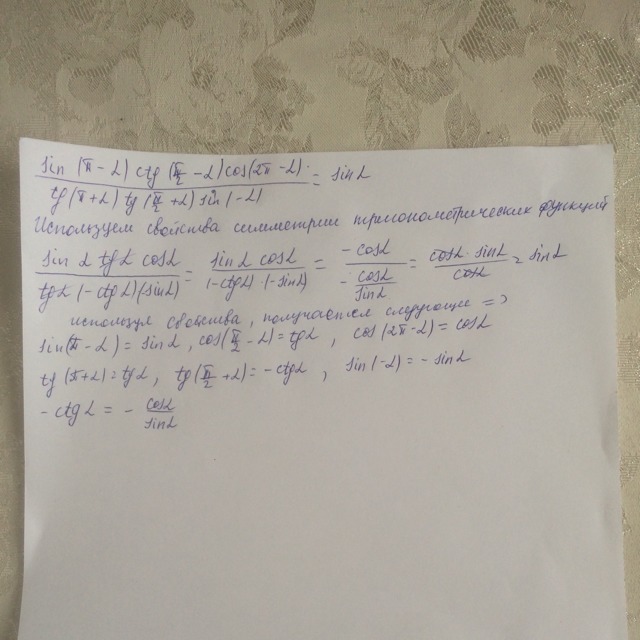 sin (π - α) ctg (π/2 - α) cos(2π - α) / tg (π + α) tg (π/2 + α) sin (-α) = sin α
Используем свойства симметрии тригонометрических функций
sin α tg α cos α / tg α (-ctg α)(sin α) = sin α cos α / (-ctg α) (-sin α) = -cos α / - cos α / sin α = cos α · sin α / cos α = sin α
используя свойства, получается следующее =>
sin(π - α) = sin α, cos(π/2 - α) = tg α, cos(2π - α) = cos α
tg (π + α) = tg α, tg (π/2 + α) = - ctg α, sin (-α) = - sin α
- ctg α = - cos α / sin α